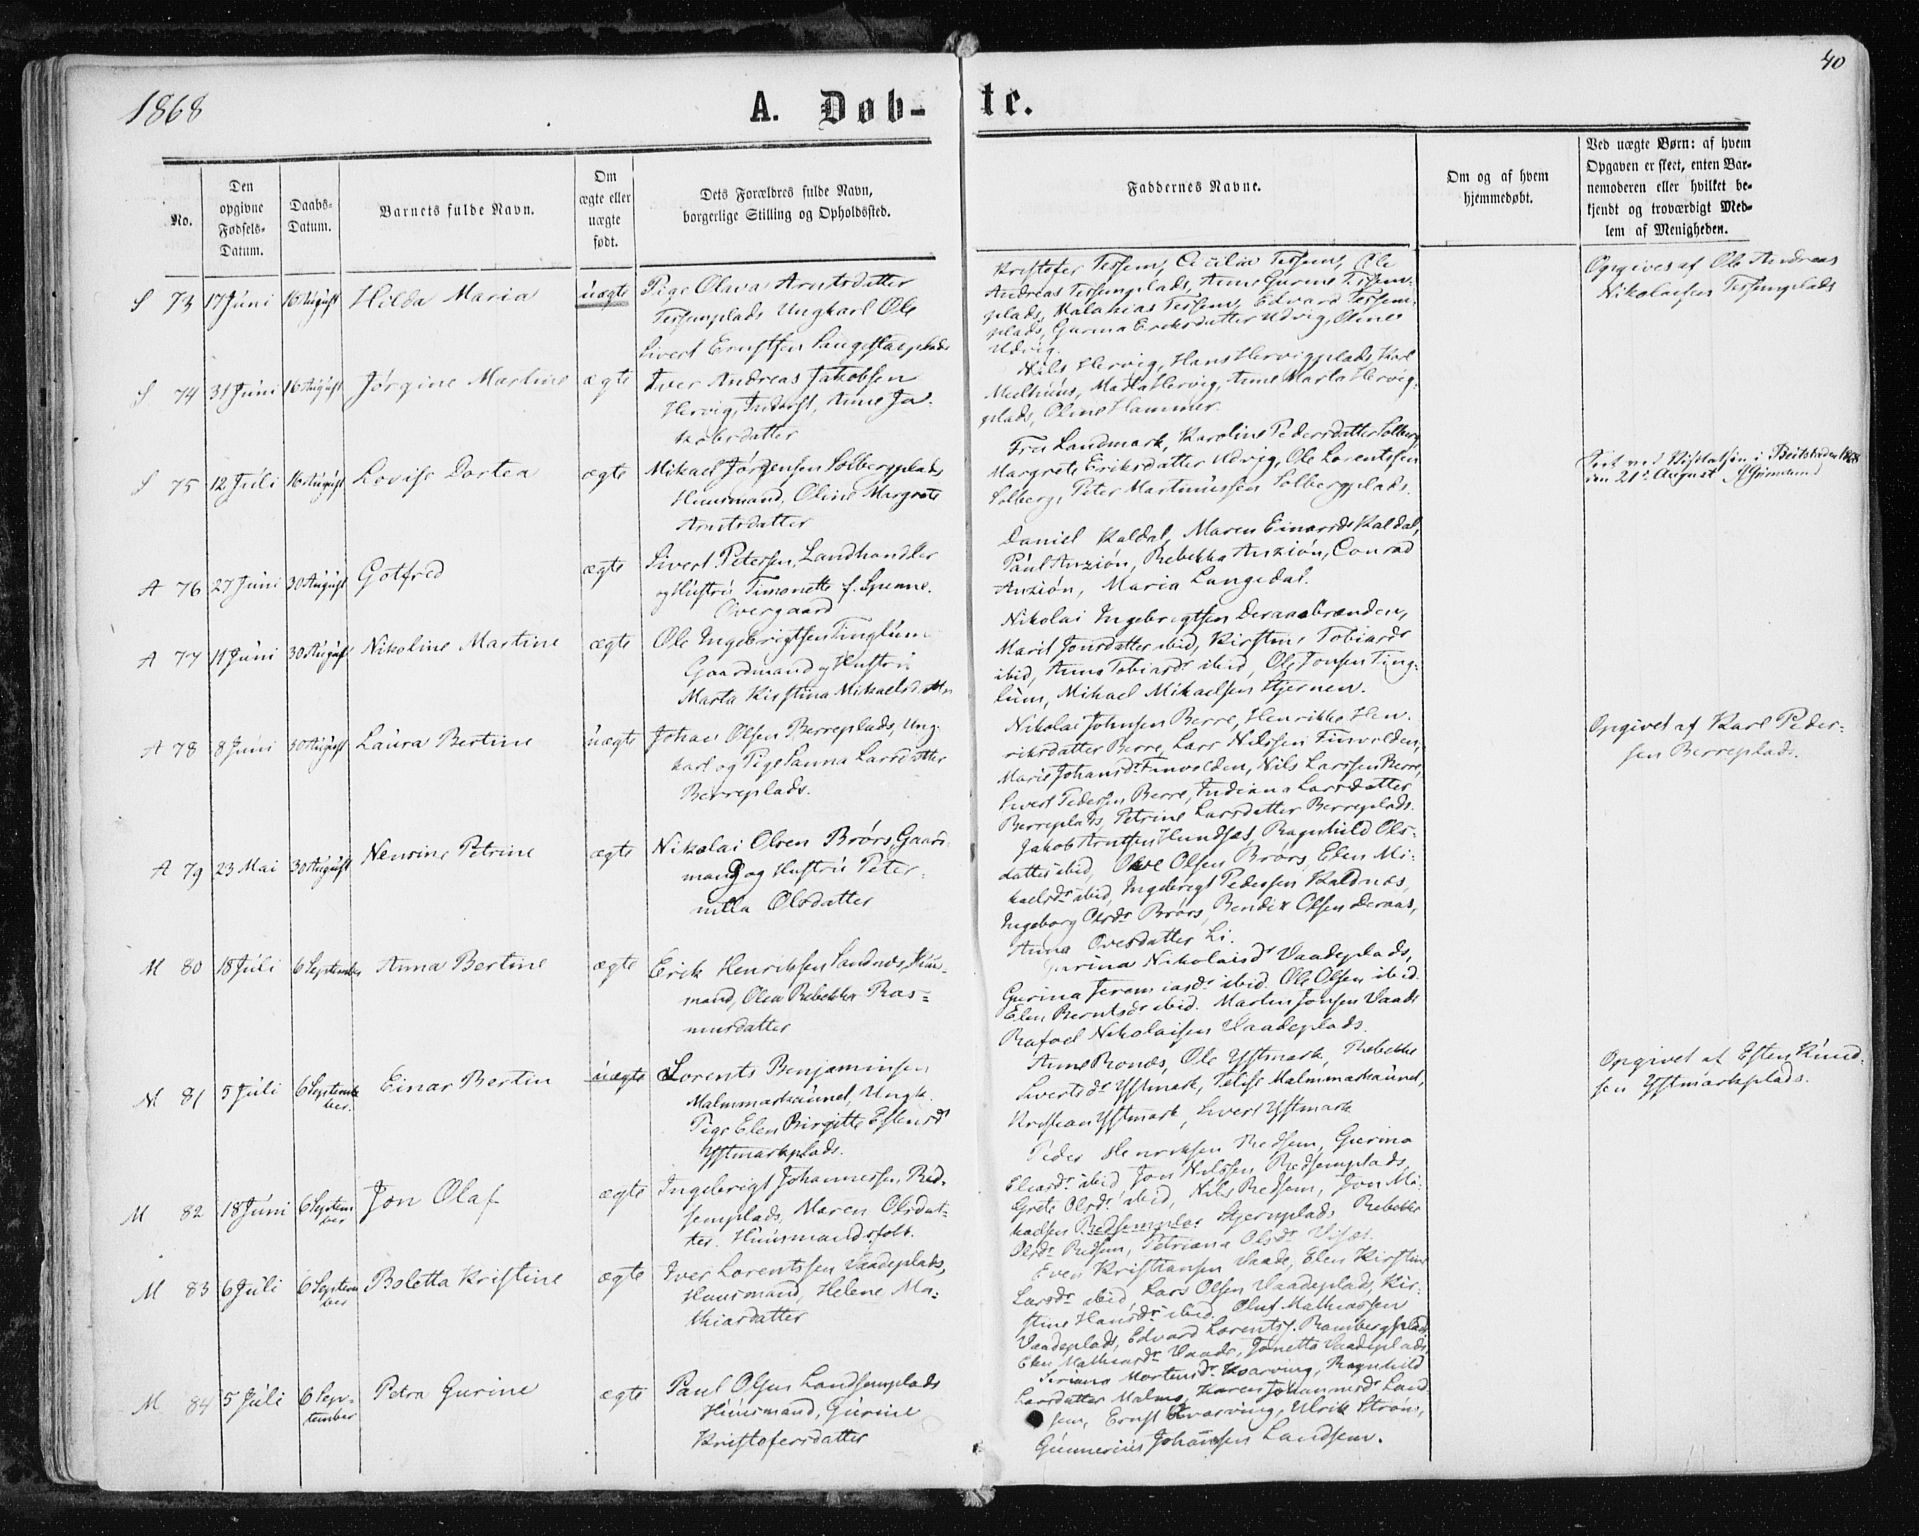 1868
40
A. Døb-
te.
No.
Den
opgivne
Fødsels-
Datum.
Daabs-
Datum.
Barnets fulde Navn.
Om
ægte eller
uægte
født.
Dets Forældres fulde Navn,
borgerlige Stilling og Opholdssted.
Faddernes Navne.
Om og af hvem
hjemmedøbt.
Ved uægte Børn: af hvem
Opgaven er skeet, enten Bar-
nemoderen eller hvilket be-
kjendt og troværdigt Med-
lem af Menigheden.
S 73 17 Juni 16 August Hilda Maria uægte
Pige Olava Arntsdatter
Tessemplads Ungkarl Ole
Sivert Ernstsen Langstadplads
Kristofer Tessem, Cicilia Tessem, Ole
Andreas Tessemplads, Anne Gurine Tessem-
plads, Mathias Tessem, Edvard Tessem-
plads, Gurina Eriksdatter Udvig, Oline
Udvig.
Opgives af Ole Andreas
Nikolaisen Tessemplads
S 74 31 Juni 16 August Jørgine Martine ægte
Iver Andreas Jakobsen
Hervig, Inderst, Anne Ja-
kobsdatter
Nils Hervig, Hans Hervigplads, Karl
Melhuus, Marta Hervig, Anne Marta Hervig-
plads, Oline Hammer.
S 75 12 Juli 16 August Lovise Dortea ægte
Mikael Jørgensen Solbergplads
Huusmand, Oline Margrete
Arntsdatter
Fru Landmark, Karoline Pedersdatter Solberg
Margrete Eriksdatter Udvig, Ole Lorentssen
Solberg, Peter Martinussen Solbergplads.
i Beitstaden 1868
den 21de August
A 76 27 Juni 30 August Gotfred ægte
Sivert Petersen, Landhandler
og Hustru Timonette f. Spenne.
Overgaard
Daniel Kaldal, Maren Einarsdr Kaldal,
Paul Anziøn, Rebekka Anziøn, Conrad
Anziøn, Maria Langedal.
A 77 11 Juni 30 August Nikoline Martine ægte
Ole Ingebrigtsen Tinglum
Gaardmand og Hustru
Marta Kirstina Mikaelsdatter
Nikolai Ingebrigtsen Deraasbrænden,
Marit Jonsdatter ibid, Kirstine Tobiasdr
ibid, Anne Tobiasdr ibid, Ole Jonsen Ting-
lum, Mikael Mikaelsen Stjernen.
A 78 8 Juni 30 August Laura Bertine uægte
Johan Olsen Berreplads, Ung-
karl og Pige Sanna Larsdatter
Berreplads.
Nikolai Johnsen Berre, Henrikke Hen-
riksdatter Berre, Lars Nilssen Finvolden,
Marie Johansdr Finvolden, Nils Larssen Berre,
Sivert Pedersen Berre, Indiana Larsdatter
Berreplads Petrine Larsdatter Berreplads.
Opgivet af Karl Peder-
sen Berreplads.
A 79 23 Mai 30 August Nensine Petrine ægte
Nikolai Olsen Brørs, Gaard-
mand og Hustru Peter-
nilla Olsdatter
Jakob Arntsen Hundsæt, Ragnhild Ols-
datter ibid, Ole Olsen Brørs, Elen Mi-
kaelsdr ibid, Ingebrigt Pedersen Kaldnæs,
Ingeborg Olsdr Brørs, Bendix Olsen Deraas,
Anna Ovesdatter Li.
M 80 18 Juli 6 September Anna Bertine ægte
Erik Henriksen Sandnæs, Huus-
mand, Olea Rebekka Ras-
musdatter
Gurina Nikolaisdr Vaadeplads,
Gurina Jeremiasdr ibid. Ole Olsen ibid.
Elen Berntsdr ibid. Martin Jonsen Vaade
Rafael Nikolaisen Vaadeplads.
M 81 5 Juli 6 Septem-
ber. Einar Bertin uægte
Lorents Benjaminsen
Malmmarkaunet, Ungk.
Pige Elen Birgitte Estensdr
Ystmarkplads.
Anne Ronæs, Ole Ystmark, Rebekke
Sivertsdr Ystmark, Malmmarkaunet,
Kristian Ystmark, Sivert Ystmark
Opgivet af Esten Knud-
sen Ystmarkplads.
M 82 18 Juni 6 Septem-
ber Jon Olaf ægte
Ingebrigt Johannessen, Red-
semplads, Maren Olsdat-
ter. Huusmandsfolk.
Peder Henriksen Redsem, Gurina
Eliasdr ibid Jon Nilssen Redsemplads,
Grete Olsdr ibid, Nils Redsem, Jon Mi-
kaelsen Redsemplas Stjernplads Rebekke
Olsdr Redsem, Petriana Olsdr
M 83 6 Juli 6 Septem-
ber Boletta Kristine ægte
Iver Lorentssen Vaadeplads,
Huusmand, Helene Ma-
thiasdatter
Even Kristiansen Vaade, Elen Kirstine
Larsdr ibid, Lars Olsen Vaadeplads, Kir-
stine Hansdr ibid. Oluf Mathiassen
Vaadeplads, Edvard Lorents. Rambergplads
Elen Mathiasdr Vaade, Jonetta Vaadeplads
M 84 5 Juli 6 Sep-
tember Petra Gurine ægte
Paul Olsen Landsemplads
Huusmand, Gurine
Kristofersdatter
Mortensdr Kvarving, Ragnhild
Larsdatter Malmo, Karen Johannesdr Land-
sem, Ernst Kvarving, Ulrik Strøm,
Gunnerius Johansen Landsem.